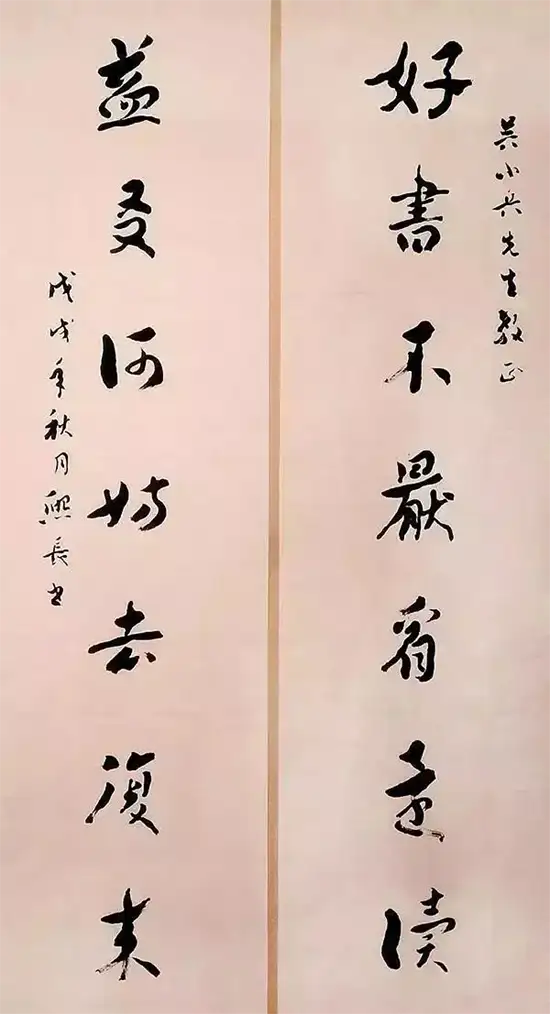 吴小兵先生教正
好書不厭看還讀
益友何妨去復来
戊戌年秋月熙長书